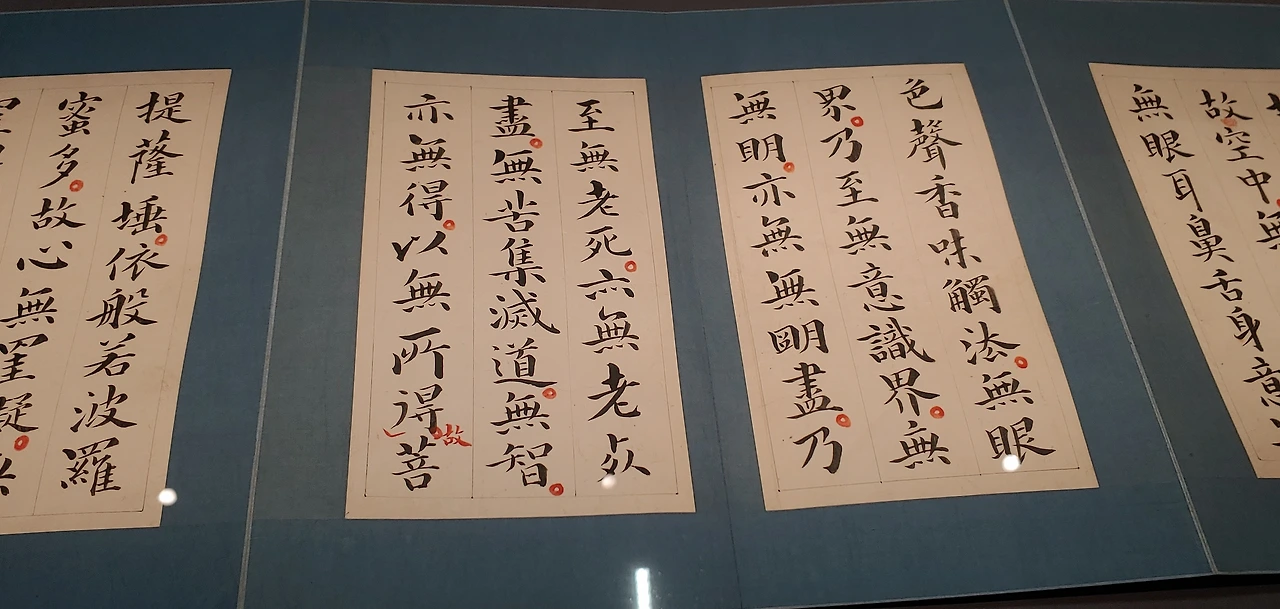 故空中無
無眼耳鼻舌身意
色聲香味觸法無眼
界乃至無意識界無
無眀亦無無朙盡乃
至無老死亦無老死
盡無苦集滅道無智
亦無得以無所得故菩
提薩埵依般若波羅
蜜多故心無罣礙